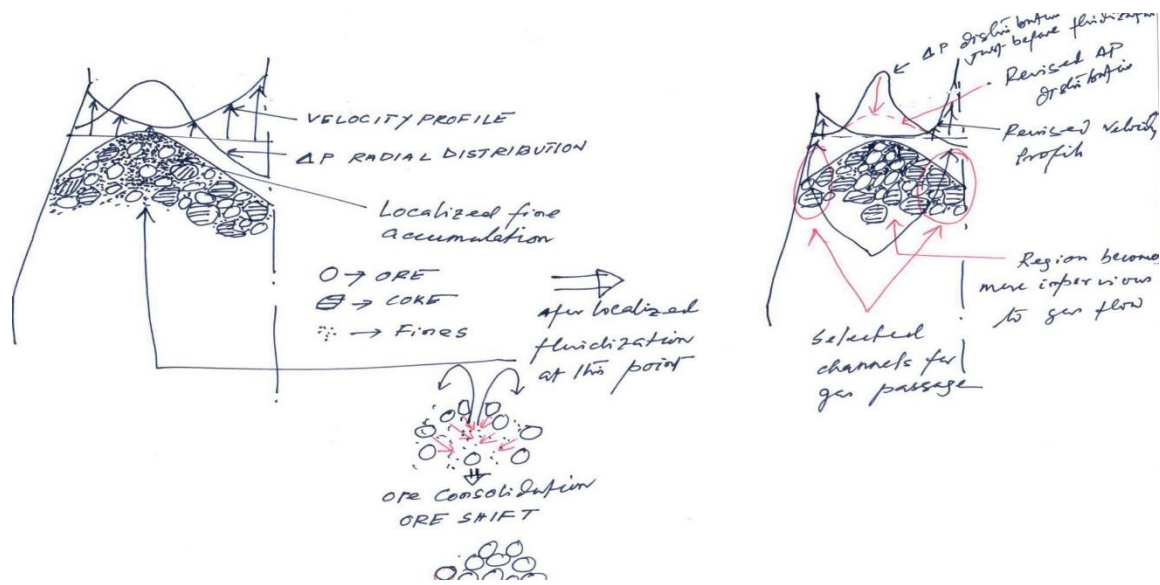 VELOCITY PROFILE
ΔP RADIAL DISTRIBUTION
Localized fine
accumulation
O → ORE
→ COKE
→ Fines
After localized
fluidization
at this point
Ore Consolidation
ORE SHIFT
ΔP distribution
just before fluidization
Revised ΔP
distribution
Revised velocity
Profile
Region becomes
more impervious
to gas flow
Selected
channels for
gas passage